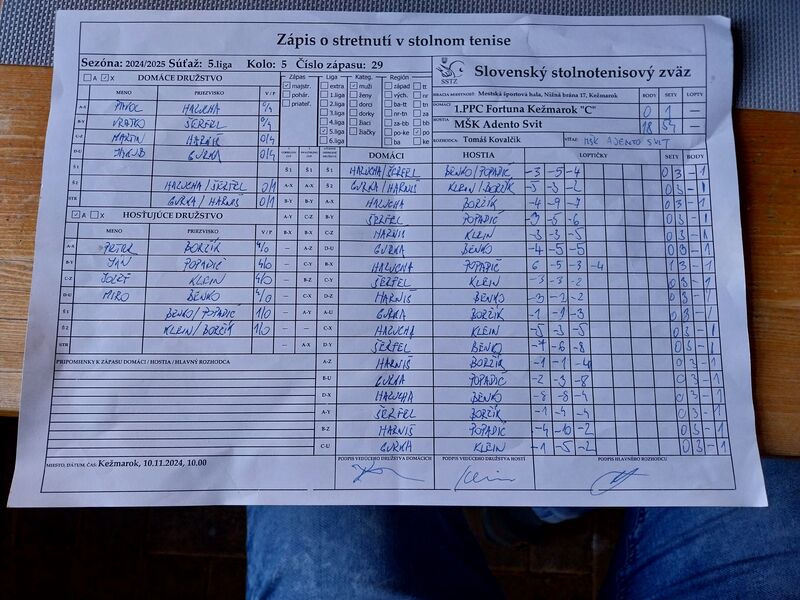 Zápis o stretnutí v stolnom tenise
Sezóna: 2024/2025 Súťaž: 5.liga Kolo: 5 Číslo zápasu: 29
SSTZ
Slovenský stolnotenisový zväz
A X DOMÁCE DRUŽSTVO
Zápas Liga Kateg. Región
majstr. extra muži západ tt
pohár. 1.liga ženy vých. nr
priateľ. 2.liga dorci ba-tt tn
3.liga dorky tn-nr za
4.liga žiaci za-bb bb
5.liga žiačky po-ke po
6.liga ba ke
HRACIA MIESTNOSŤ: Mestská športová hala, Nižná brána 17, Kežmarok BODY SETY LOPTY
DOMÁCI 1.PPC Fortuna Kežmarok "C" 0 1 —
HOSTIA MŠK Adento Svit 18 54 —
ROZHODCA: Tomáš Kovalčík VÍŤAZ: MŠK ADENTO SVIT
MENO PRIEZVISKO V / P
A-X PAVOL HALUCHA
B-Y VRATKO ŠERFEL
C-Z MARTIN HARNIŠ 0/4
D-U JAKUB GURKA 0/4
Š 1 HALUCHA / ŠERFEL 0/1
Š 2 GURKA / HARNIŠ 0/1
STR
A X HOSŤUJÚCE DRUŽSTVO
MENO PRIEZVISKO V / P
A-X PETER BORŽÍK 4/0
B-Y JÁN POPADIČ 4/0
C-Z JOZEF KLEIN 4/0
D-U MIRO BENKO 4/0
Š 1 BENKO / POPADIČ 1/0
Š 2 KLEIN / BORŽÍK 1/0
STR
DOMÁCI HOSTIA LOPTIČKY SETY BODY
Š 1 Š 1 Š 1 HALUCHA/ŠERFEL BENKO/POPADIČ -3 -5 -4 0 3 - 1
A-X A-X Š 2 GURKA/HARNIŠ KLEIN/BORŽÍK -5 -3 -2 0 3 - 1
B-Y B-Y A-X HALUCHA BORŽÍK -4 -9 -7 0 3 - 1
A-Y C-Z B-Y ŠERFEL POPADIČ -3 -5 -6 0 3 - 1
B-X B-X C-Z HARNIŠ KLEIN -3 -3 -5 0 3 - 1
— A-Z D-U GURKA BENKO -4 -5 -5 0 3 - 1
— C-Y B-X HALUCHA POPADIČ 6 -5 -3 -4 1 3 - 1
— B-Z C-Y ŠERFEL KLEIN -3 -3 -2 0 3 - 1
— C-X D-Z HARNIŠ BENKO -3 -2 -2 0 3 - 1
— A-Y A-U GURKA BORŽÍK 0 3 - 1
— — C-X HALUCHA KLEIN -5 -3 -5 0 3 - 1
— A-X D-Y ŠERFEL BENKO -7 -6 -8 0 3 - 1
A-Z HARNIŠ BORŽÍK -1 -1 -4 0 3 - 1
B-U GURKA POPADIČ -2 -3 -8 0 3 - 1
D-X HALUCHA BENKO -8 -8 -4 0 3 - 1
A-Y ŠERFEL BORŽÍK -1 -4 -4 0 3 - 1
B-Z HARNIŠ POPADIČ -4 -10 -2 0 3 - 1
C-U GURKA KLEIN -1 -5 -2 0 3 - 1
PRIPOMIENKY K ZÁPASU DOMÁCI / HOSTIA / HLAVNÝ ROZHODCA
MIESTO, DÁTUM, ČAS: Kežmarok, 10.11.2024, 10.00
PODPIS VEDÚCEHO DRUŽSTVA DOMÁCICH PODPIS VEDÚCEHO DRUŽSTVA HOSTÍ PODPIS HLAVNÉHO ROZHODCU